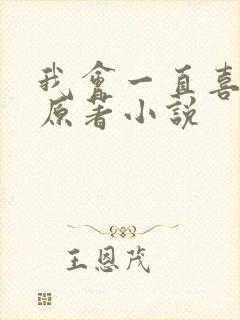 我會一直喜
原著小説
王恩茂